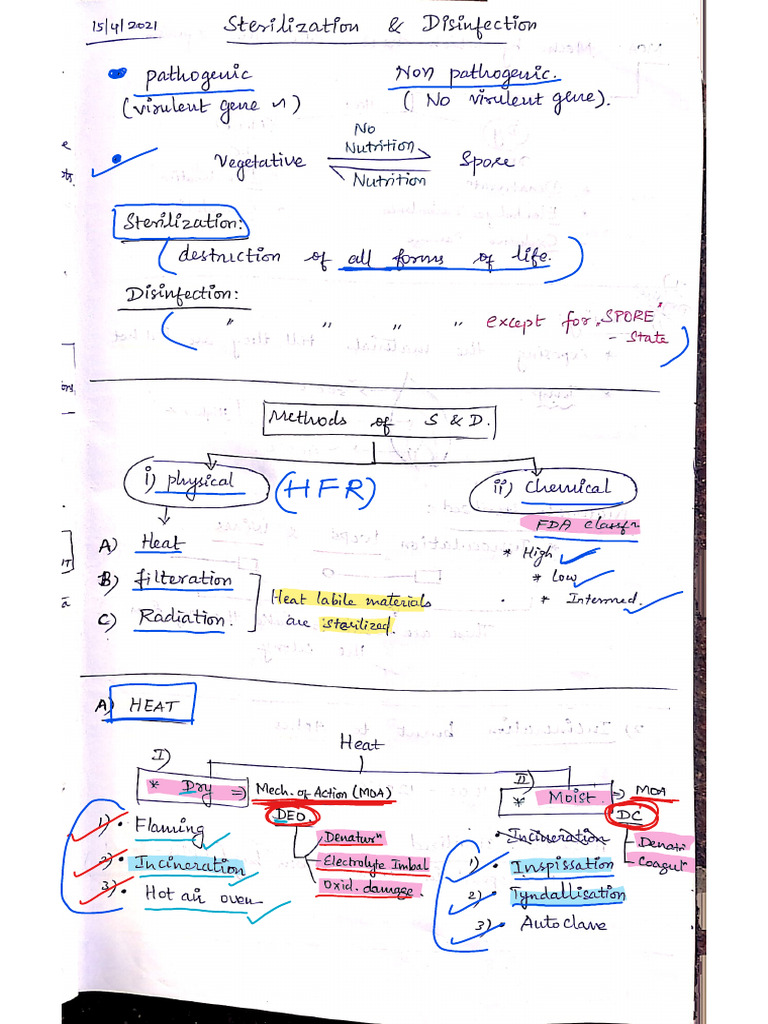 15/4/2021
Sterilization & Disinfection
pathogenic
Non pathogenic.
(virulent gene ∽)
( No virulent gene).
No
Nutrition
Vegetative
Spore
Nutrition
Sterilization:
destruction of all forms of life.
Disinfection:
" " " " except for "SPORE"
- State
Methods of S & D.
i) physical
(HFR)
ii) Chemical
FDA Classfn
A) Heat
* High
B) filteration
* Low
Heat labile materials
* Intermed.
C) Radiation
are sterilized.
A) HEAT
Heat
I)
* Dry ⇒ Mech. of Action (MOA)
II)
* Moist. ⇒ MOA
DEO.
DC
1) • Flaming
Denaturn
Incineration
Denatn
2) • Incineration
Electrolyte Imbal
1) • Inspissation
Coagun
3) • Hot air oven
Oxid. damage
2) • Tyndallisation
3) • Autoclave